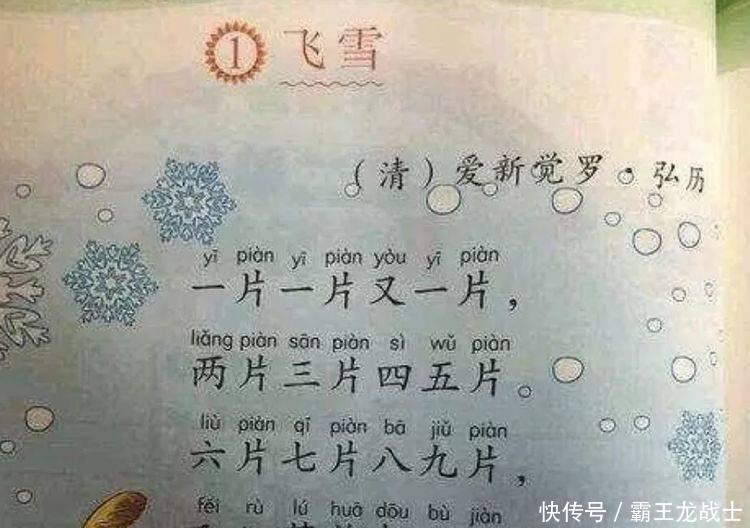 1 飞雪
（清）爱新觉罗·弘历
yī piàn yī piàn yòu yī piàn
一片一片又一片，
liǎng piàn sān piàn sì wǔ piàn
两片三片四五片。
liù piàn qī piàn bā jiǔ piàn
六片七片八九片，
fēi rù lú huā dōu bù jiàn
快传号／霸王龙战士